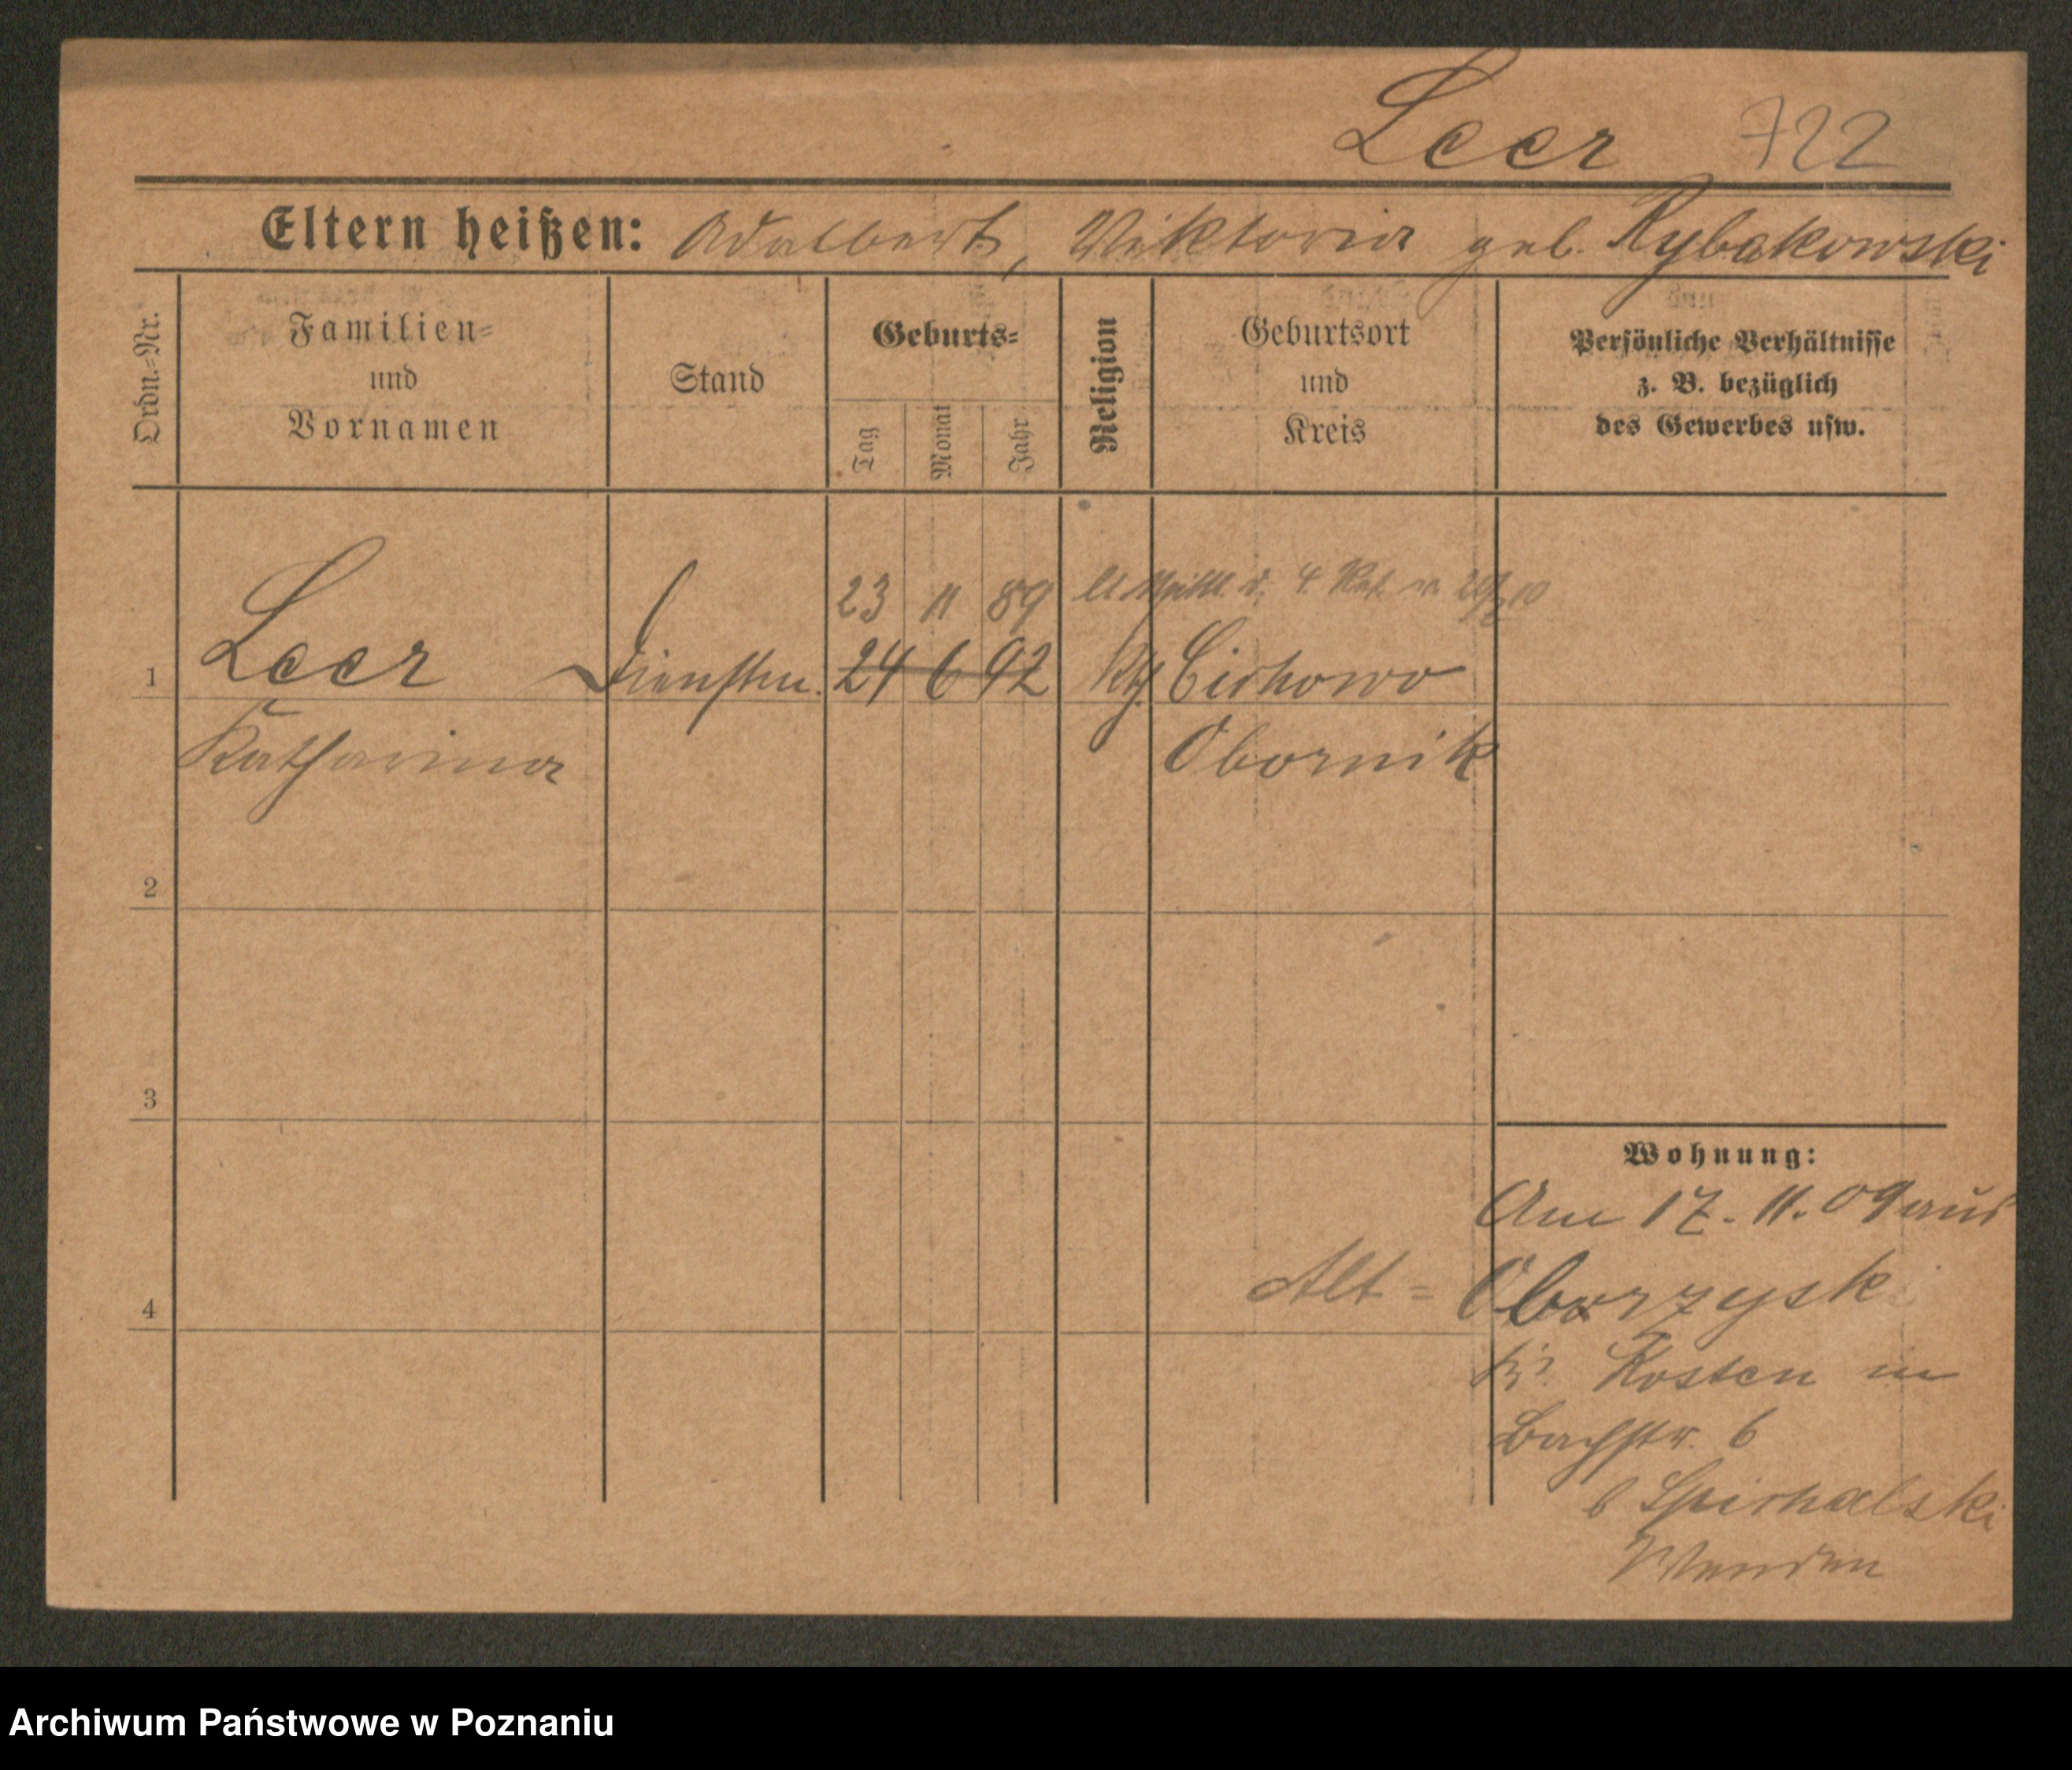 Leer 722
Eltern heißen: Adalbert, Viktoria geb. Rybakowski
Ordn.-Nr.
Familien-
und
Vornamen
Stand
Geburts-
Tag
Monat
Jahr
Religion
Geburtsort
und
Kreis
Persönliche Verhältnisse
z. B. bezüglich
des Gewerbes usw.
23 11 89 lt. Mitttl. d. 4. v.
1 Leer Dienstm. 24 6 92 Cichowo
Katharina Obornik
2
3
Wohnung:
Am 17. 11. 09 aus
4 Alt = Oborzysk
Kr. Kosten in
Bachstr. 6
b Spichalski
Archiwum Państwowe w Poznaniu